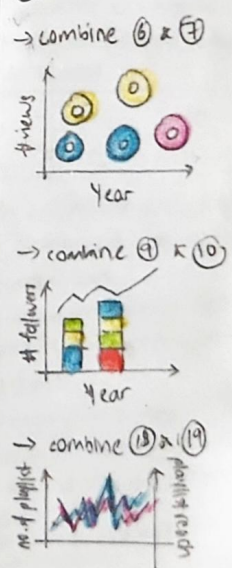 → combine ⑥ & ⑦
# views
Year
→ combine ⑨ & ⑩
# followers
Year
↳ combine ⑱ & ⑲
no. of playlist
playlist reach